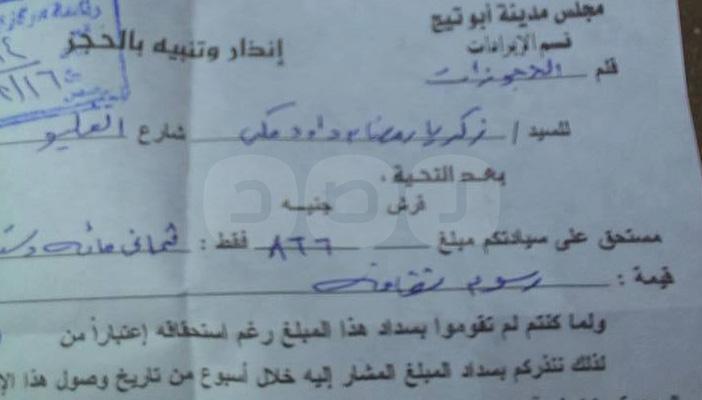 مجلس مدينة أبوتيج
قسم الإيرادات
قلم الحجوزات
إنذار وتنبيه بالحجز
للسيد / زكريا رمضان داود مكى شارع
بعد التحية ،
قرش جنيه
مستحق على سيادتكم مبلغ ٨٦٦ فقط : ثمانى مائه
قيمة : رسوم نظافه
ولما كنتم لم تقوموا بسداد هذا المبلغ رغم استحقاقه إعتباراً من
لذلك ننذركم بسداد المبلغ المشار إليه خلال أسبوع من تاريخ وصول هذا
رصد